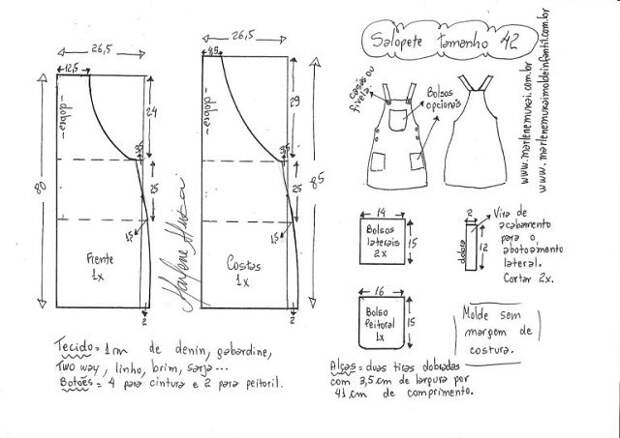 Salopete tamanho 42
www.marlenemukai.com.br
www.marlenemukaimoldeinfantil.com.br
26,5
12,5
dobra
24
80
25
1,5
Frente
1x
2
26,5
8,5
dobra
29
85
25
1,5
Costas
1x
2
Marlene Mukai
casas ou
fivela
Bolsos
opcionais
14
Bolsos
laterais
2x
15
2
dobra
12
Vira de
acabamento
para o
abotoamento
lateral.
Cortar 2x.
16
Bolso
Peitoral
1x
15
Molde sem
margem de
costura.
Tecido = 1m de denin, gabardine,
Two way, linho, brim, sarja...
Botões = 4 para cintura e 2 para peitoril.
Alças = duas tiras dobradas
com 3,5cm de largura por
41cm de comprimento.